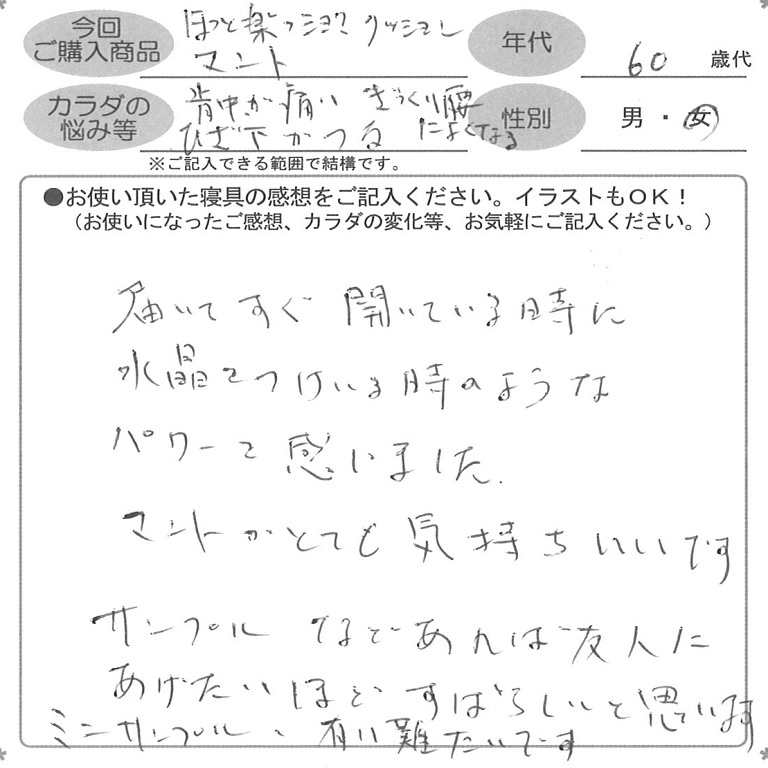 今回
ご購入商品
ほっと楽っションクッション
マント
年代
60 歳代
カラダの
悩み等
背中が痛い ぎっくり腰
ひざ下がつる によくなる
性別
男・女
※ご記入できる範囲で結構です。
●お使い頂いた寝具の感想をご記入ください。イラストもOK！
（お使いになったご感想、カラダの変化等、お気軽にご記入ください。）
届いてすぐ 開いている時に
水晶をつけている時のような
パワーを感いました.
マントがとても気持ちいいです
サンプル などであれば友人に
あげたいほど すばらしいと思ています
ミニサンプル、有り難たいです